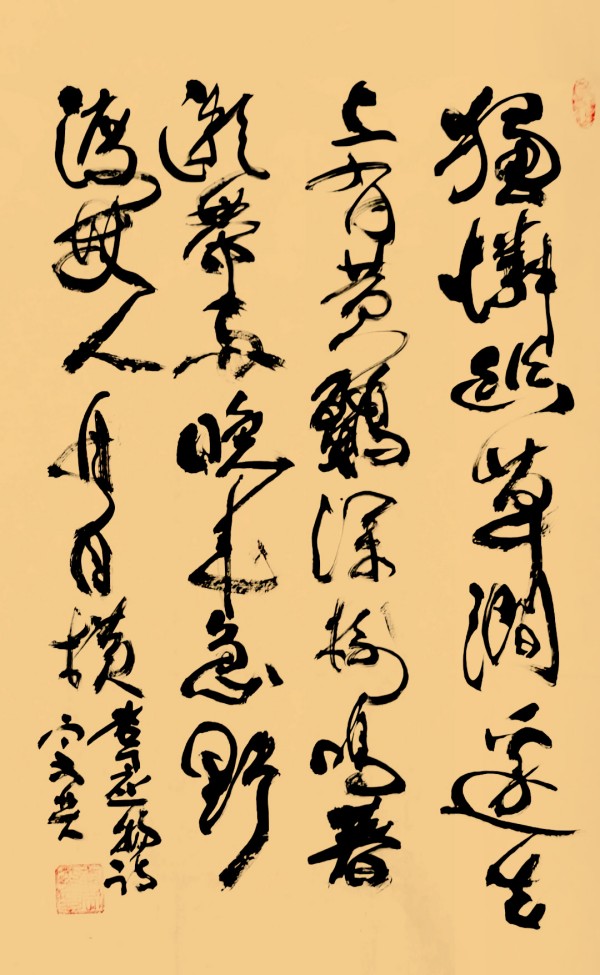 獨憐幽草澗邊生
上有黄鸝深樹鳴春
潮帶雨晚來急野
渡無人舟自横
韋應物詩